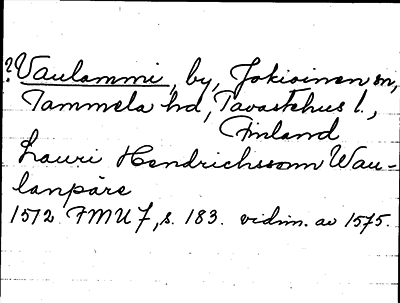 ?Vaulammi, by, Jokioinen sn,
Tammela hd, Tavastehus l.,
Finland
Lauri Hendrichssonn Wau-
lanpäre
1512 FMU 7, s. 183. vidim. av 1575.